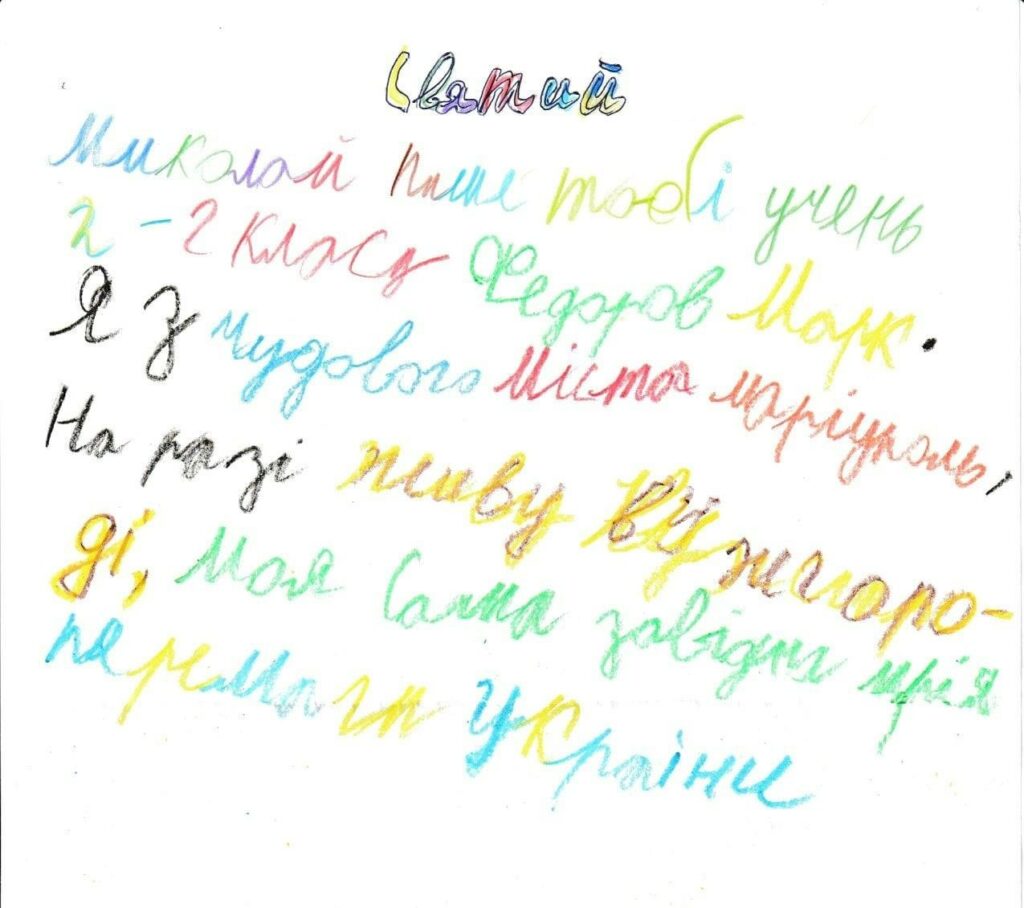 Святий
Миколай пише тобі учень
2-Г класу Федоров Марк.
Я з чудового міста маріуполь,
На разі живу в Ужгоро-
ді, моя сама завідна мрія
перемаги України